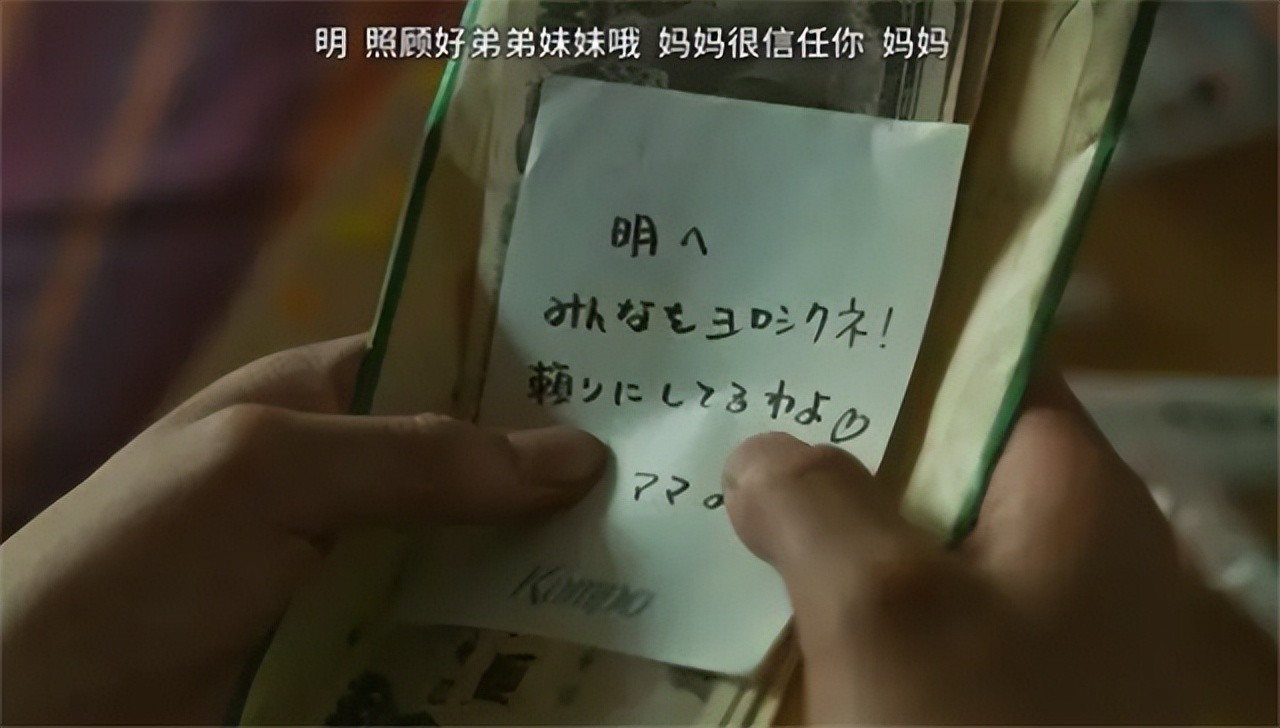 明 照顾好弟弟妹妹哦 妈妈很信任你 妈妈
明へ
みんなをヨロシクネ!
頼りにしてるわよ♡
ママ
Kampo